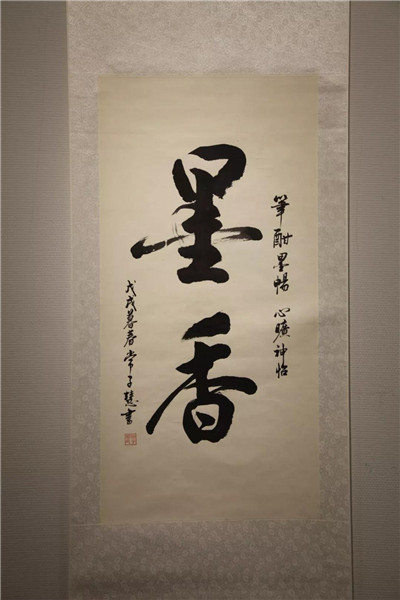 筆酣墨暢 心曠神怡
墨香
戊戌暮春常子慧書